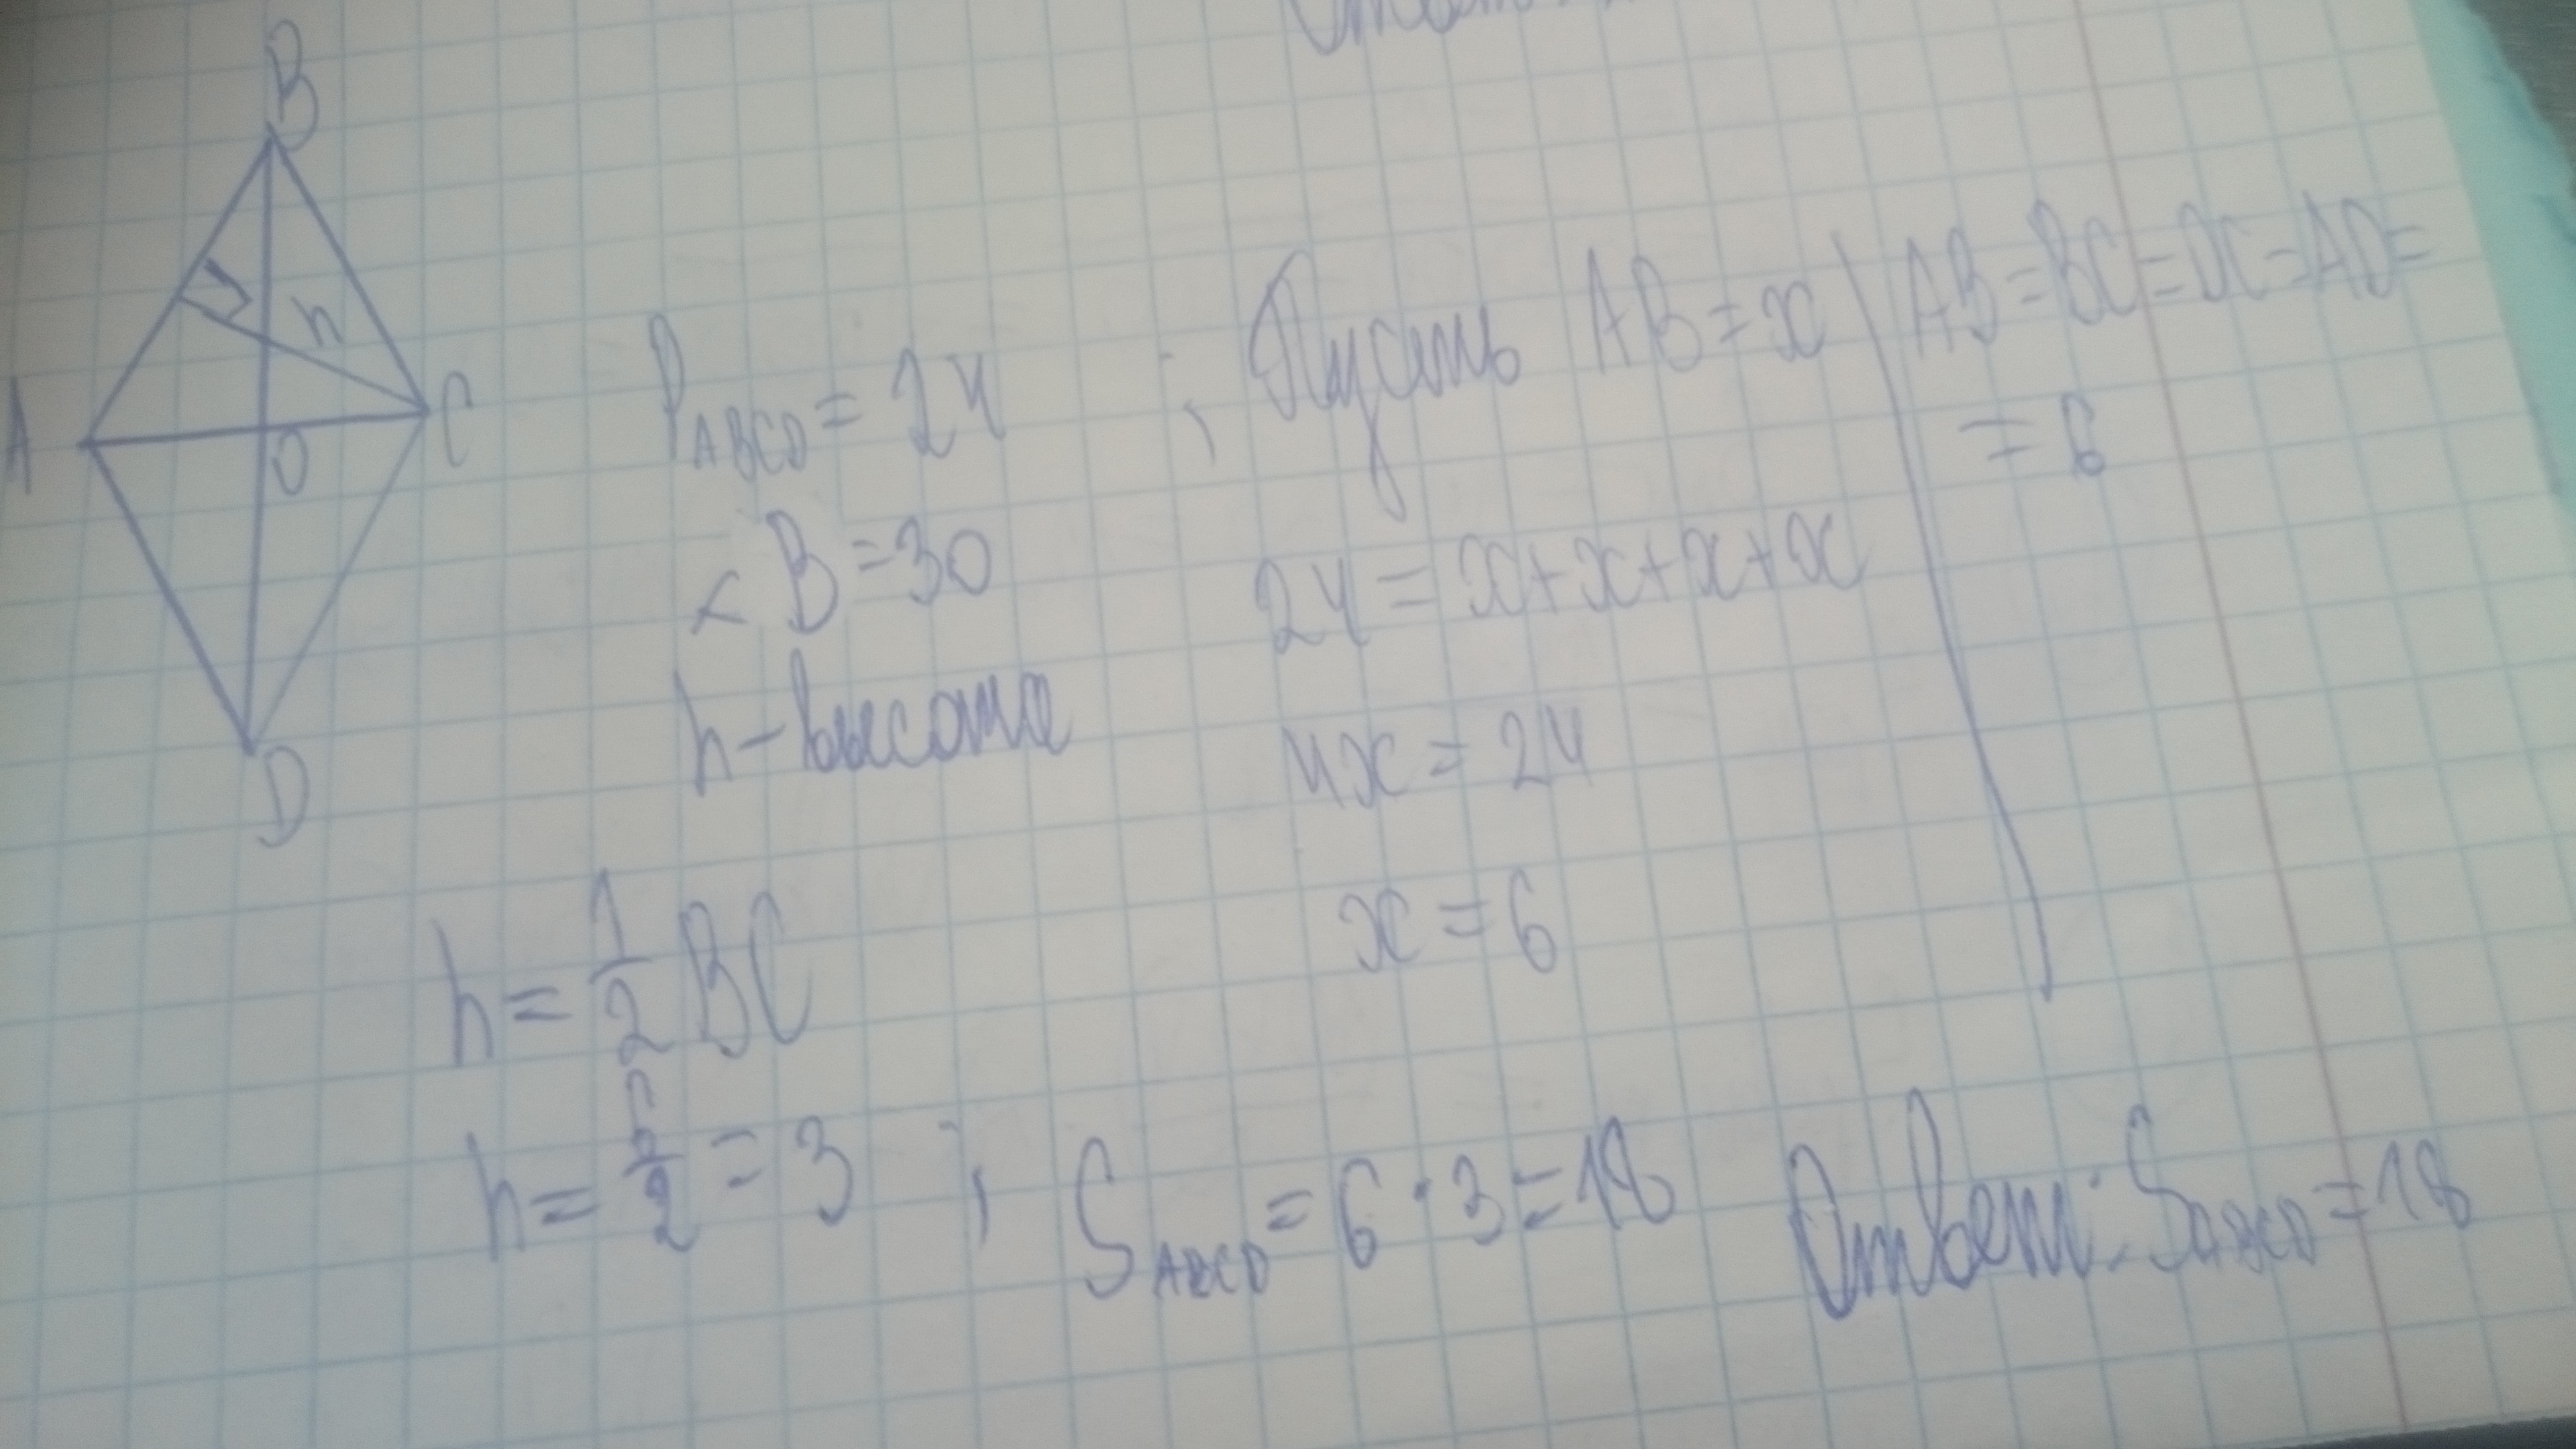 B
h
A
O
C
D
P ABCD = 24 ;
< B = 30
h - высота
Пусть AB = x
24 = x + x + x + x
4x = 24
x = 6
AB = BC = DC = AD =
= 6
h = 1/2 BC
h = 6/2 = 3 ; S ABCD = 6 · 3 = 18 Ответ: S ABCD = 18